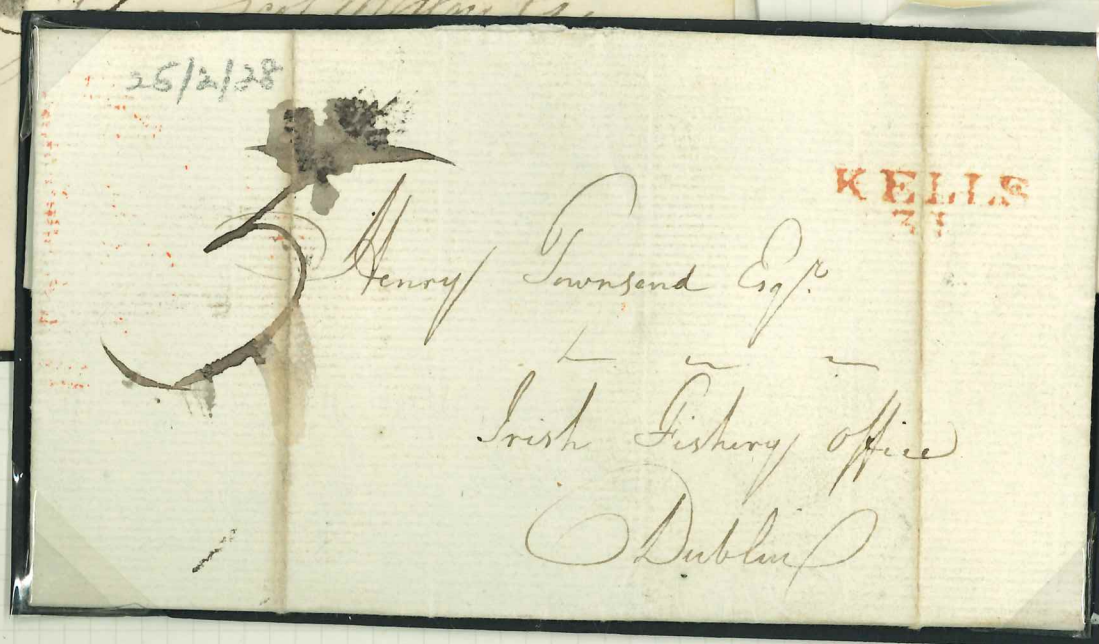 25/2/28
5
KELLS
31
Henry Townsend Esqr.
Irish Fishery Office
Dublin